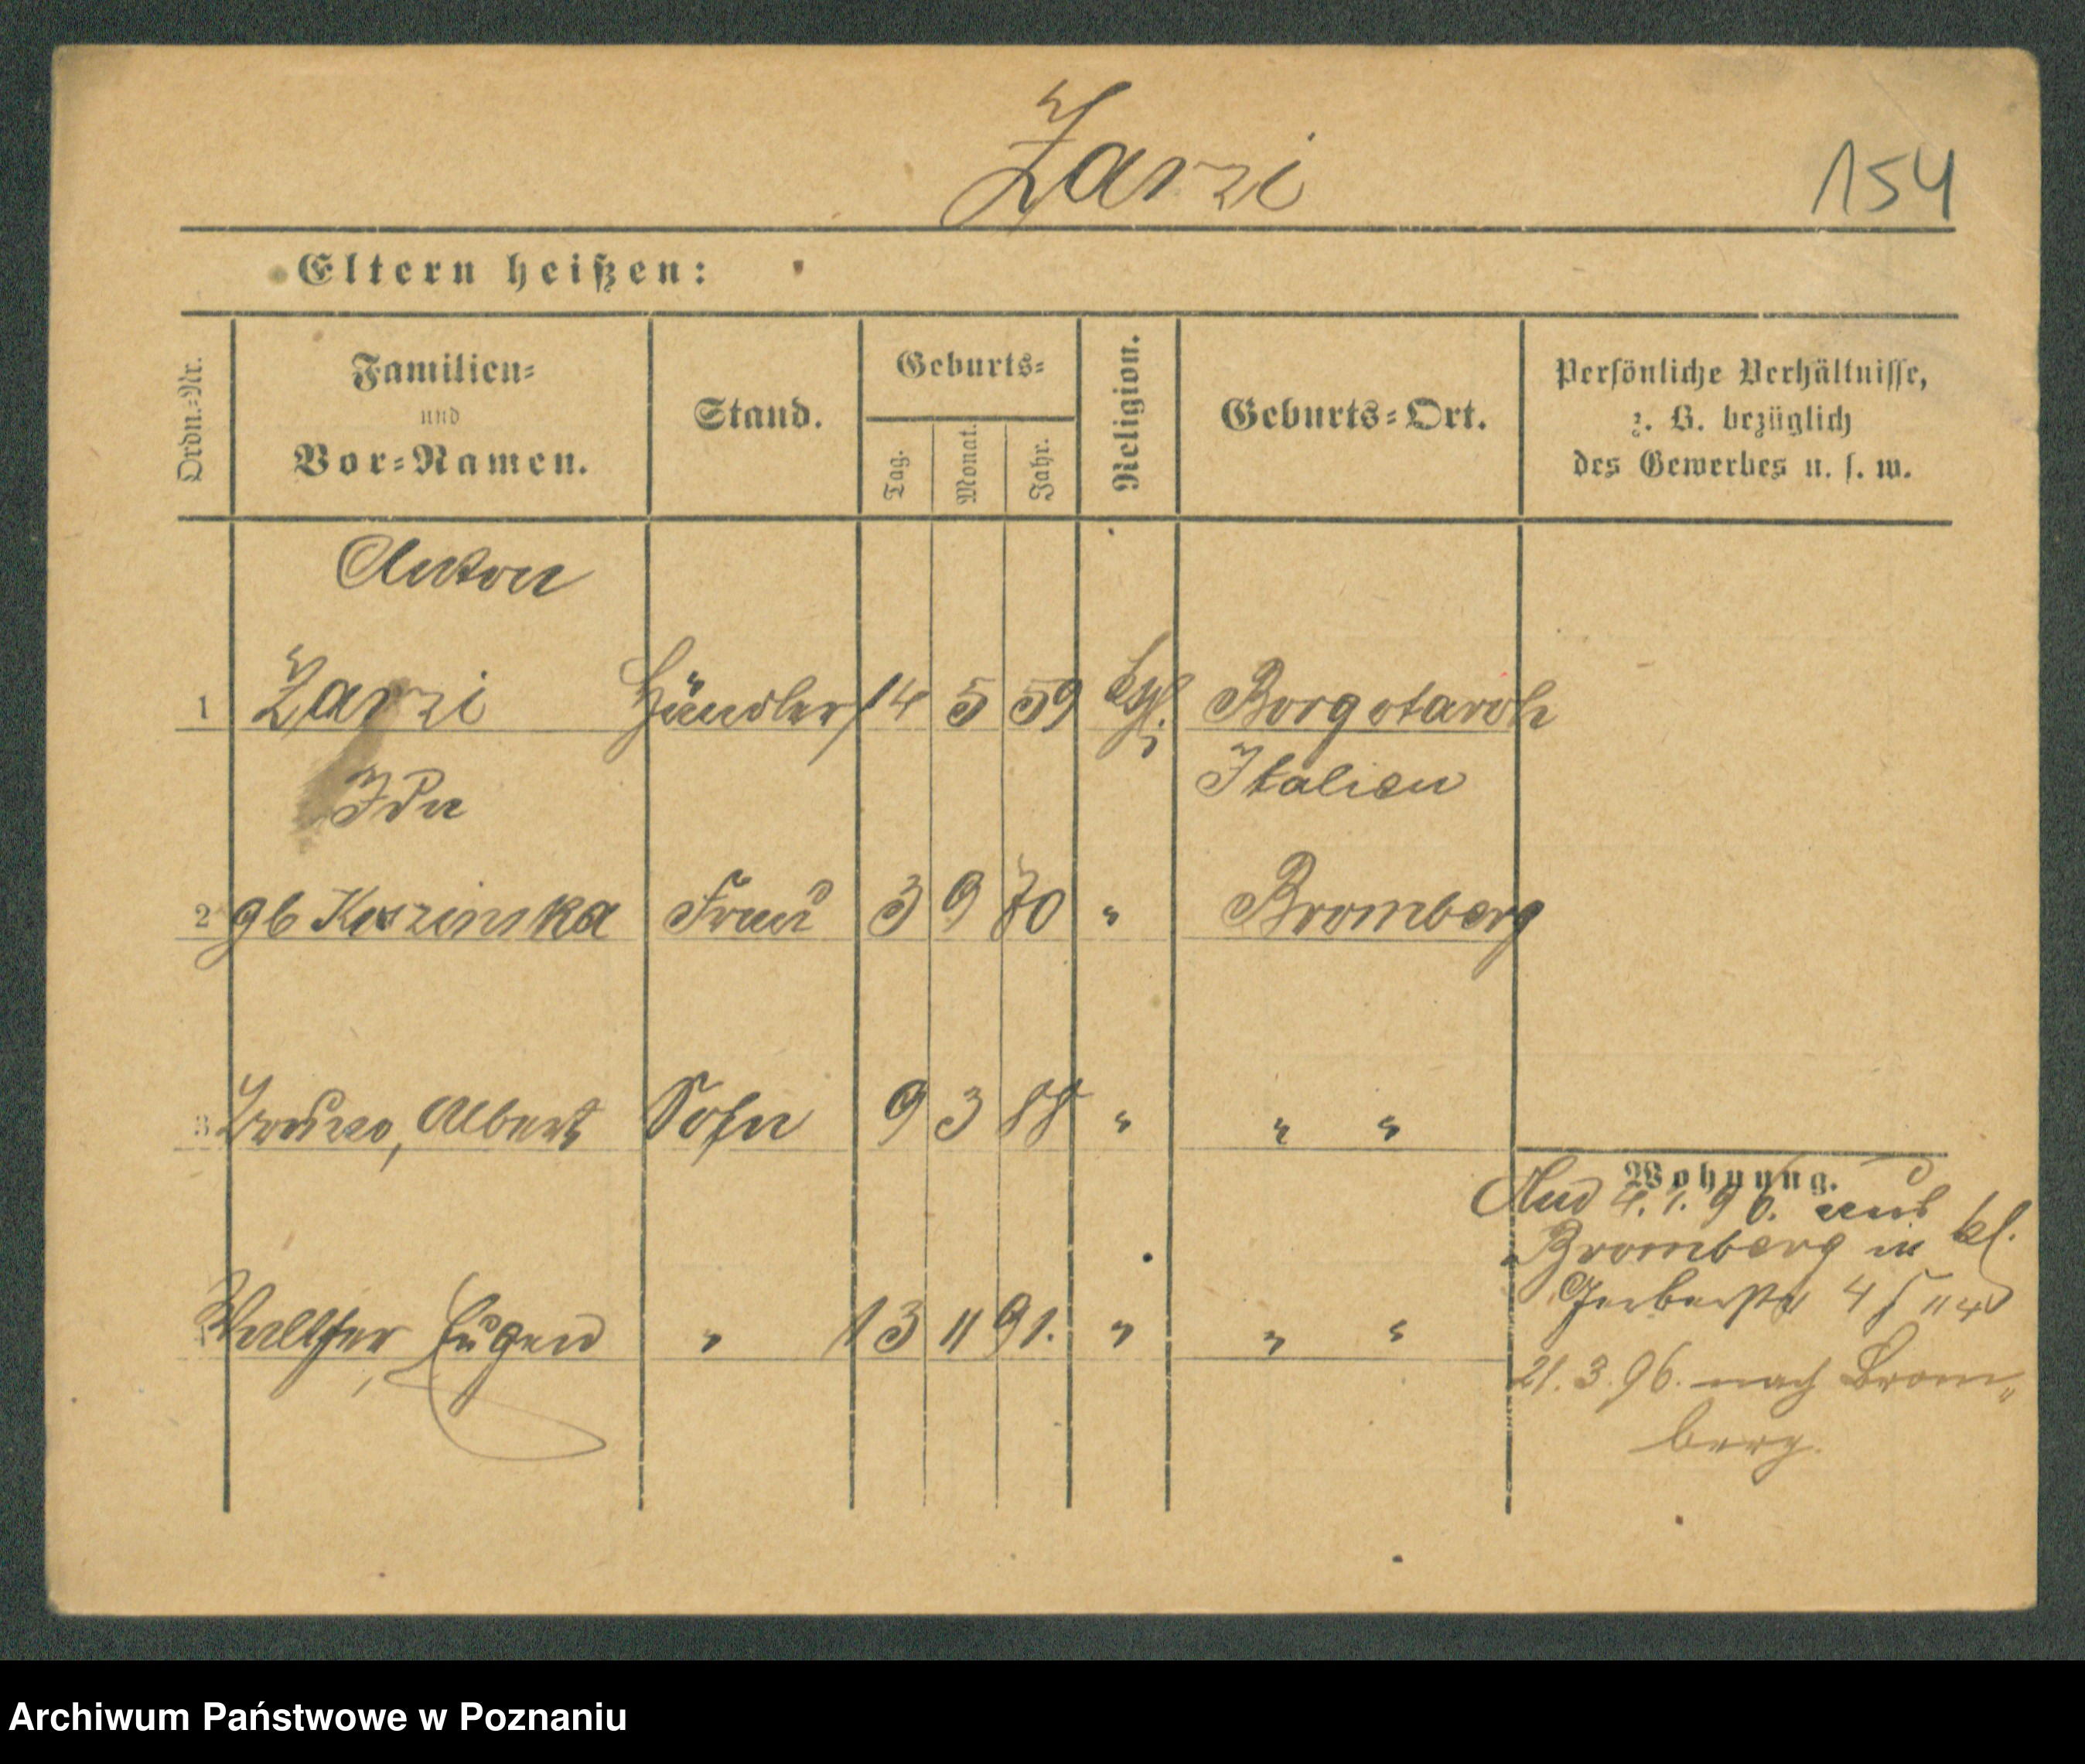 Zarzi
154
Eltern heißen:
Ordn.-Nr.
Familien-
und
Vor-Namen.
Stand.
Geburts-
Tag.
Monat.
Jahr.
Religion.
Geburts-Ort.
Persönliche Verhältnisse,
z. B. bezüglich
des Gewerbes u. s. w.
Anton
1 Zarzi Händler 14 5 59 Borgotaroh
Italien
Ida
2 gb Koszinska Frau 3 9 70 " Bromberg
3 Bruno, Albert Sohn 9 3 88 " " "
Walther, Eugen " 13 11 91. " " "
Wohnung.
And 4.1.96. aus
Bromberg in kl.
Gerberstr 4
21.3.96. nach Brom„
berg.
Archiwum Państwowe w Poznaniu